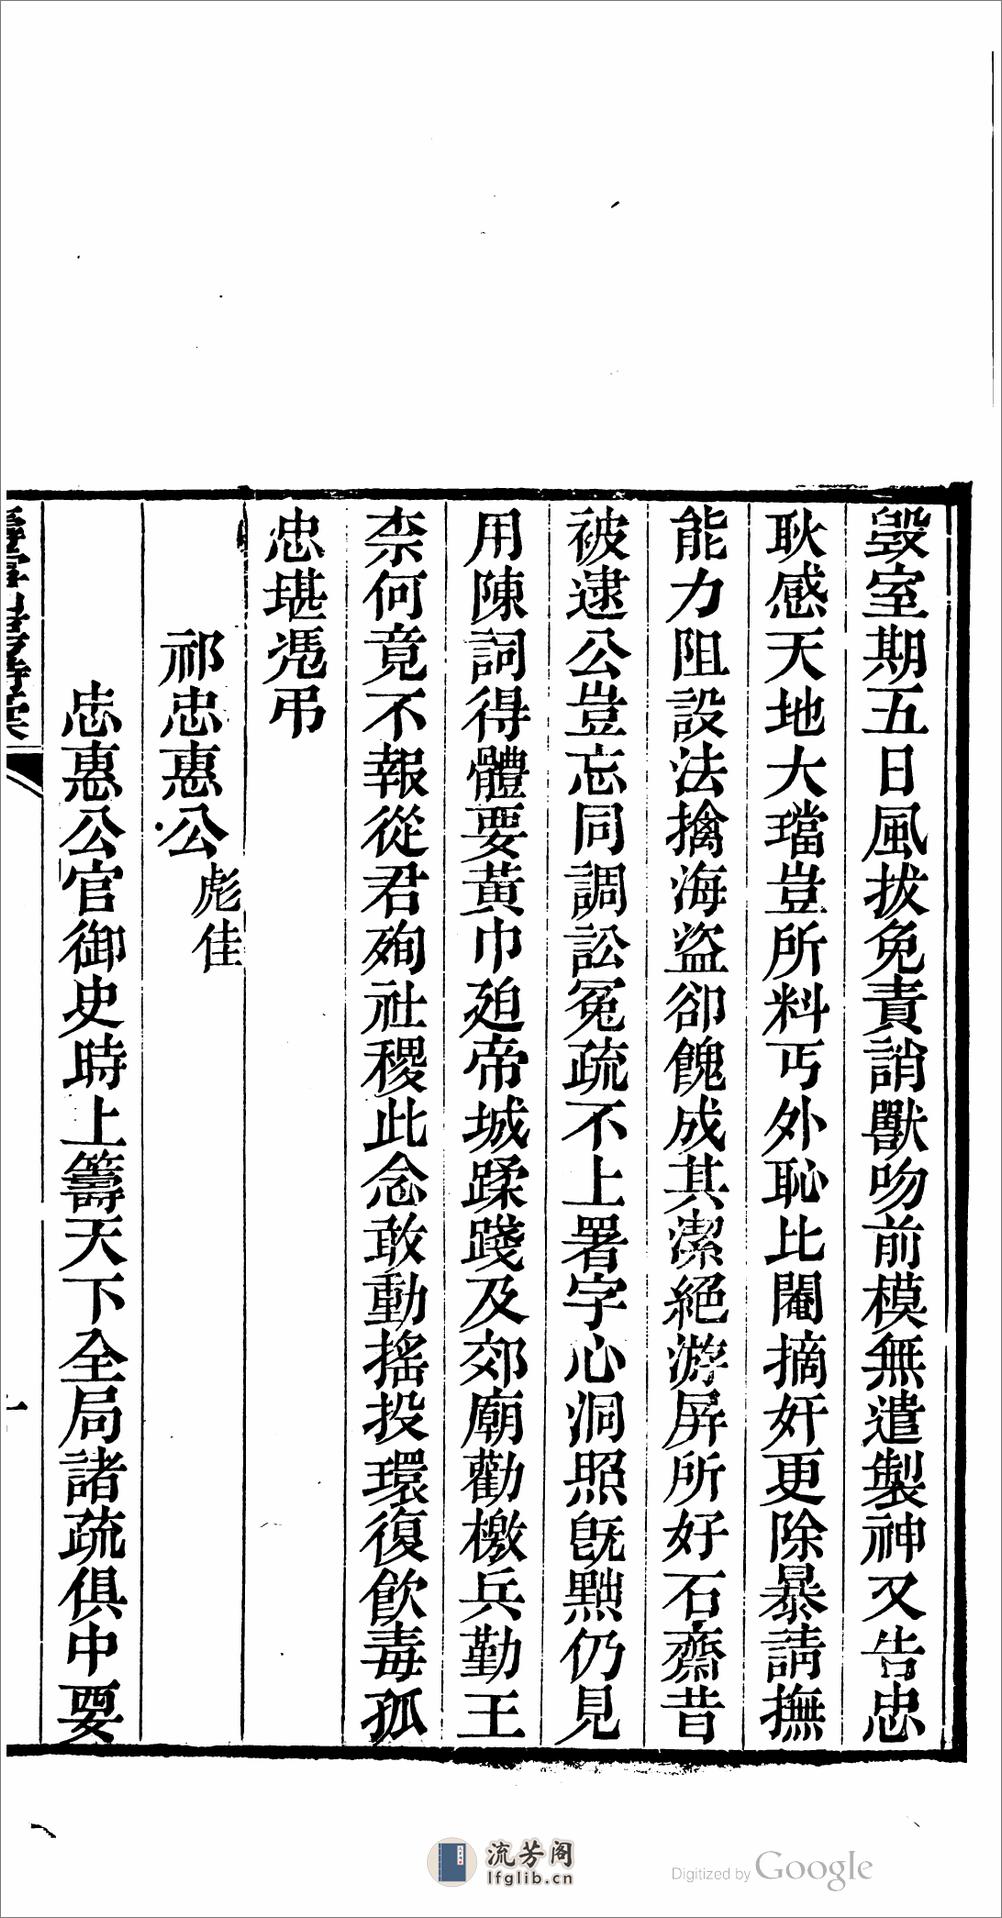 毀室期五日風拔免責誚獸吻前模無遣製神又告忠
耿感天地大璫豈所料丐外恥比閹摘奸更除暴請撫
能力阻設法擒海盜卻餽成其潔絕游屏所好石齋昔
被逮公豈忘同調訟冤疏不上署字心洞照旣黜仍見
用陳詞得體要黃巾廹帝城蹂踐及郊廟勸檄兵勤王
柰何竟不報從君殉社稷此念敢動搖投環復飮毒孤
忠堪凴弔
祁忠惠公彪佳
忠惠公官御史時上籌天下全局諸疏俱中要
一
流芳阁
lfglib.cn
Digitized by Google